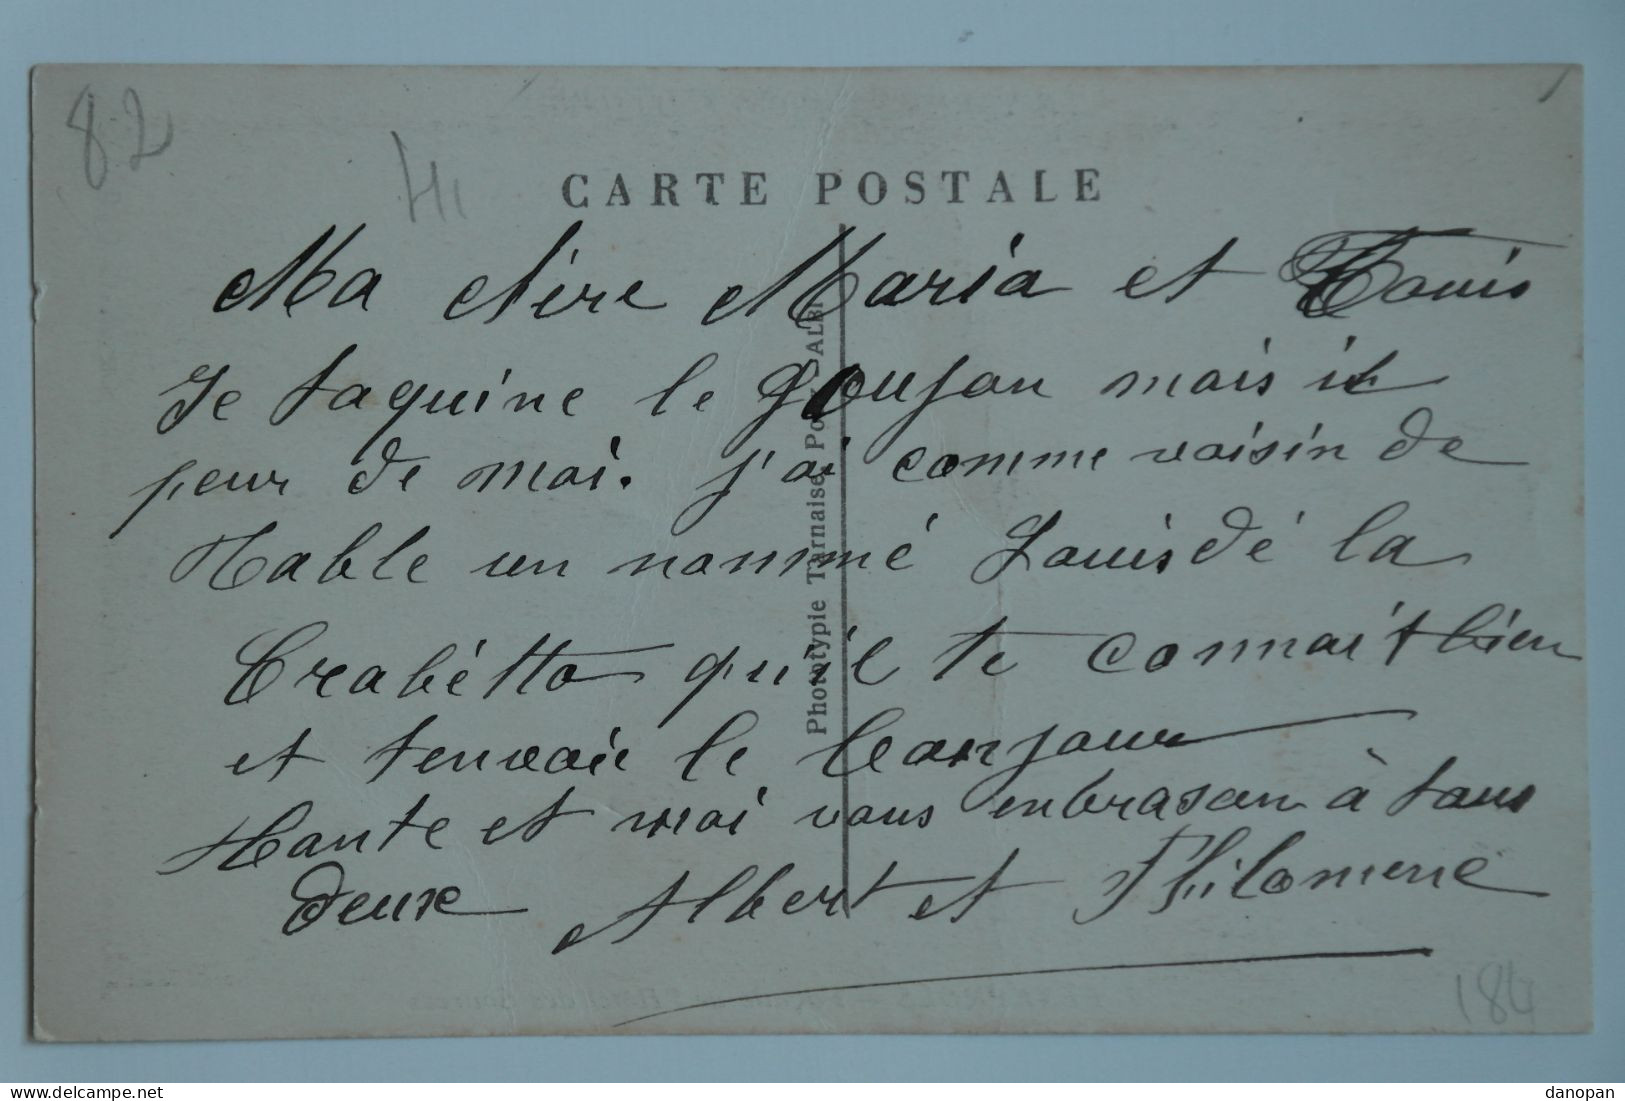 82
CARTE POSTALE
Ma chère Maria et Louis
Je taquine le goujon mais il
peur de moi. j'ai comme voisin de
Table un nommé Louis dé la
Crabétto qu'il te connait bien
et tenvoie le bonjour
Tante et moi vous enbrason à tous
deux Albert et Philomene
Phototypie Tarnaise Po ALBI
184
www.delcampe.net
danopan